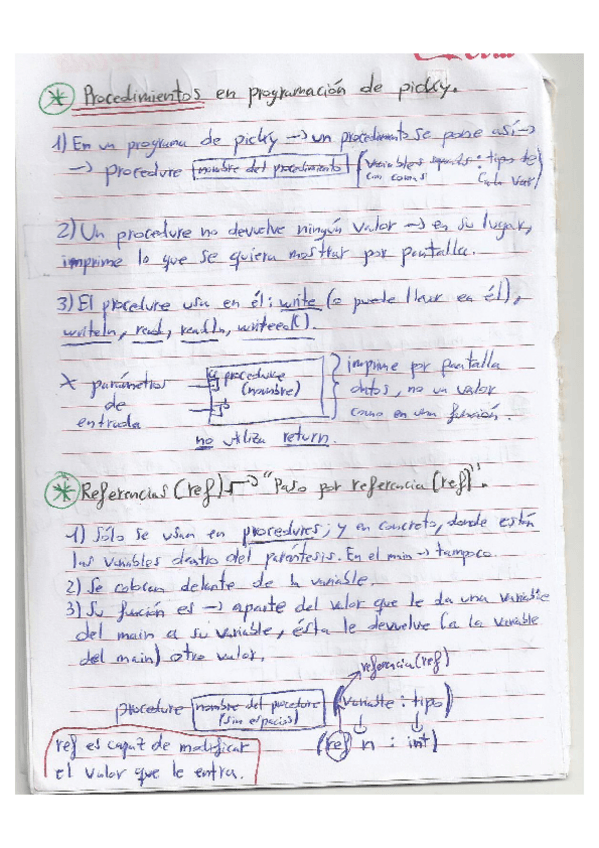 Procedimientos en programación de picky.
1) En un programa de picky → un procedimiento se pone así →
→ procedure nombre del procedimiento (variables separadas : tipo de
con comas cada var)
2) Un procedure no devuelve ningún valor → en su lugar,
imprime lo que se quiera mostrar por pantalla.
3) El procedure usa en él: write (o puede llevar en él),
writeln, read, readln, writeeol().
X parámetros
de
entrada
procedure
(nombre)
imprime por pantalla
datos, no un valor
como en una función.
no utiliza return.
Referencias (ref) → "Paso por referencia (ref)".
1) Sólo se usan en procedures; y en concreto, donde están
las variables dentro del paréntesis. En el main → tampoco.
2) Se colocan delante de la variable.
3) Su función es → aparte del valor que le da una variable
del main a su variable, ésta le devuelve (a la variable
del main) otro valor.
referencia (ref)
procedure nombre del procedure (variable : tipo)
(sin espacios)
(ref n : int)
ref es capaz de modificar
el valor que le entra.